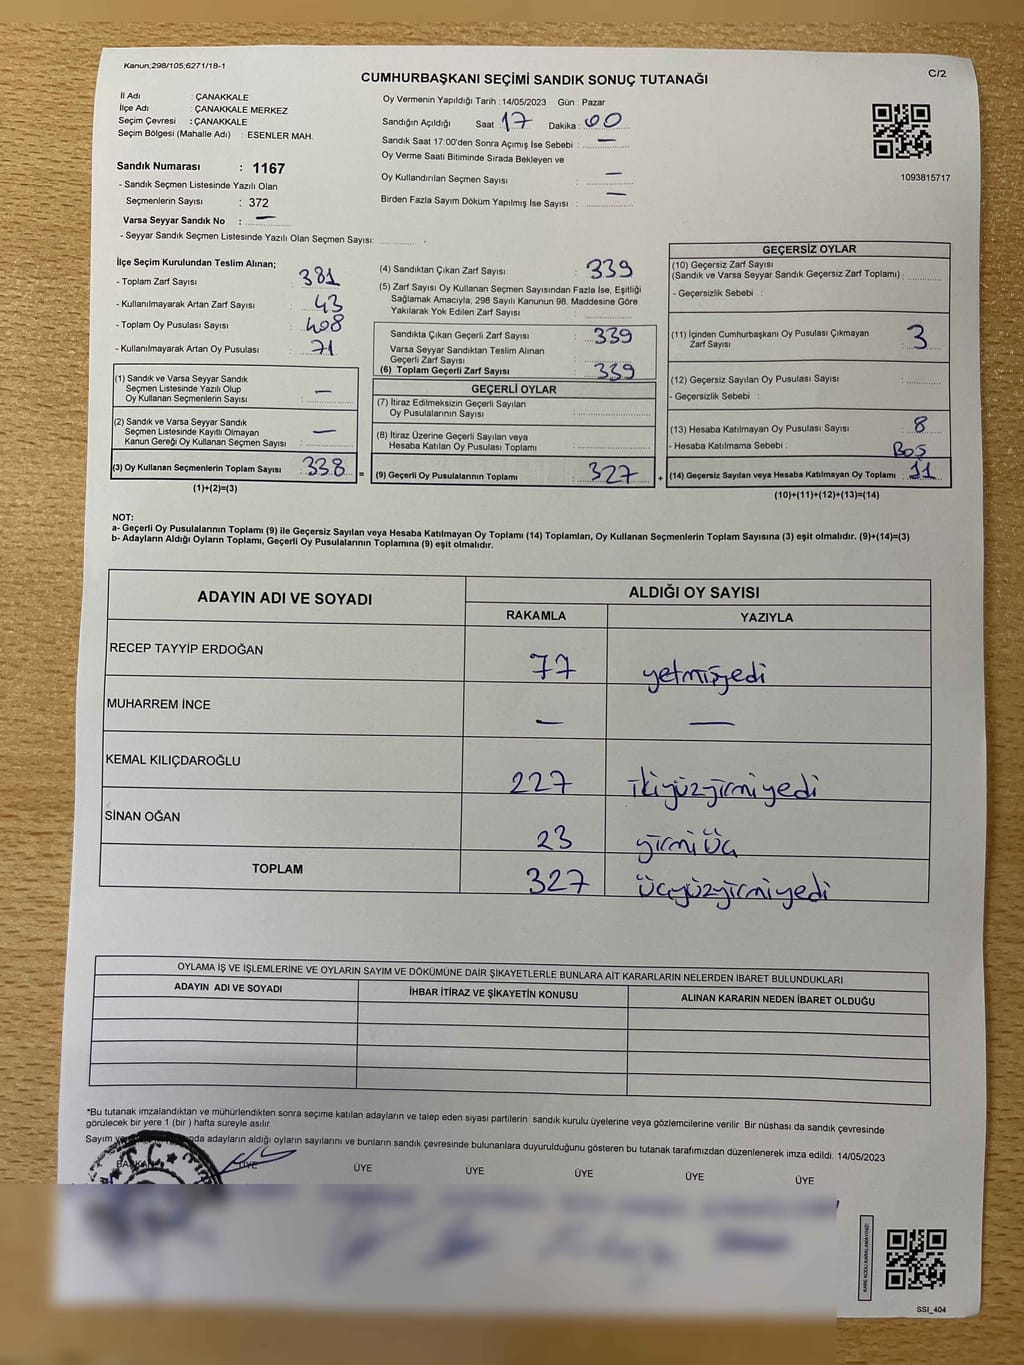 Kanun;298/105;6271/18-1
C/2
CUMHURBAŞKANI SEÇİMİ SANDIK SONUÇ TUTANAĞI
İl Adı : ÇANAKKALE
İlçe Adı : ÇANAKKALE MERKEZ
Seçim Çevresi : ÇANAKKALE
Seçim Bölgesi (Mahalle Adı) : ESENLER MAH.
Sandık Numarası : 1167
- Sandık Seçmen Listesinde Yazılı Olan
Seçmenlerin Sayısı : 372
Varsa Seyyar Sandık No : —
- Seyyar Sandık Seçmen Listesinde Yazılı Olan Seçmen Sayısı:
Oy Vermenin Yapıldığı Tarih : 14/05/2023 Gün : Pazar
Sandığın Açıldığı Saat 17 Dakika : 00
Sandık Saat 17:00'den Sonra Açımış İse Sebebi : —
Oy Verme Saati Bitiminde Sırada Bekleyen ve
Oy Kullandırılan Seçmen Sayısı : —
Birden Fazla Sayım Döküm Yapılmış İse Sayısı : —
1093815717
İlçe Seçim Kurulundan Teslim Alınan;
- Toplam Zarf Sayısı : 381
- Kullanılmayarak Artan Zarf Sayısı : 43
- Toplam Oy Pusulası Sayısı : 408
- Kullanılmayarak Artan Oy Pusulası : 71
(1) Sandık ve Varsa Seyyar Sandık
Seçmen Listesinde Yazılı Olup
Oy Kullanan Seçmenlerin Sayısı : —
(2) Sandık ve Varsa Seyyar Sandık
Seçmen Listesinde Kayıtlı Olmayan
Kanun Gereği Oy Kullanan Seçmen Sayısı : —
(3) Oy Kullanan Seçmenlerin Toplam Sayısı : 338
(1)+(2)=(3)
(4) Sandıktan Çıkan Zarf Sayısı : 339
(5) Zarf Sayısı Oy Kullanan Seçmen Sayısından Fazla İse, Eşitliği
Sağlamak Amacıyla, 298 Sayılı Kanunun 98. Maddesine Göre
Yakılarak Yok Edilen Zarf Sayısı :
Sandıkta Çıkan Geçerli Zarf Sayısı : 339
Varsa Seyyar Sandıktan Teslim Alınan
Geçerli Zarf Sayısı :
(6) Toplam Geçerli Zarf Sayısı : 339
GEÇERLİ OYLAR
(7) İtiraz Edilmeksizin Geçerli Sayılan
Oy Pusulalarının Sayısı :
(8) İtiraz Üzerine Geçerli Sayılan veya
Hesaba Katılan Oy Pusulaları Toplamı :
= (9) Geçerli Oy Pusulalarının Toplamı : 327 +
GEÇERSİZ OYLAR
(10) Geçersiz Zarf Sayısı
(Sandık ve Varsa Seyyar Sandık Geçersiz Zarf Toplamı) :
- Geçersizlik Sebebi :
(11) İçinden Cumhurbaşkanı Oy Pusulası Çıkmayan
Zarf Sayısı : 3
(12) Geçersiz Sayılan Oy Pusulası Sayısı :
- Geçersizlik Sebebi :
(13) Hesaba Katılmayan Oy Pusulası Sayısı : 8
- Hesaba Katılmama Sebebi : Boş
(14) Geçersiz Sayılan veya Hesaba Katılmayan Oy Toplamı : 11
(10)+(11)+(12)+(13)=(14)
NOT:
a- Geçerli Oy Pusulalarının Toplamı (9) ile Geçersiz Sayılan veya Hesaba Katılmayan Oy Toplamı (14) Toplamları, Oy Kullanan Seçmenlerin Toplam Sayısına (3) eşit olmalıdır. (9)+(14)=(3)
b- Adayların Aldığı Oyların Toplamı, Geçerli Oy Pusulalarının Toplamına (9) eşit olmalıdır.
ADAYIN ADI VE SOYADI ALDIĞI OY SAYISI
RAKAMLA YAZIYLA
RECEP TAYYİP ERDOĞAN 77 yetmişyedi
MUHARREM İNCE — —
KEMAL KILIÇDAROĞLU 227 ikiyüzyirmiyedi
SİNAN OĞAN 23 yirmiüç
TOPLAM 327 üçyüzyirmiyedi
OYLAMA İŞ VE İŞLEMLERİNE VE OYLARIN SAYIM VE DÖKÜMÜNE DAİR ŞİKAYETLERLE BUNLARA AİT KARARLARIN NELERDEN İBARET BULUNDUKLARI
ADAYIN ADI VE SOYADI İHBAR İTİRAZ VE ŞİKAYETİN KONUSU ALINAN KARARIN NEDEN İBARET OLDUĞU
*Bu tutanak imzalandıktan ve mühürlendikten sonra seçime katılan adayların ve talep eden siyasi partilerin sandık kurulu üyelerine veya gözlemcilerine verilir .Bir nüshası da sandık çevresinde
görülecek bir yere 1 (bir ) hafta süreyle asılır.
Sayım adayların aldığı oyların sayılarını ve bunların sandık çevresinde bulunanlara duyurulduğunu gösteren bu tutanak tarafımızdan düzenlenerek imza edildi. 14/05/2023
BAŞKAN ÜYE ÜYE ÜYE ÜYE ÜYE ÜYE
T.C.
KARE KODU KARALAMAYINIZ!
SSI_404